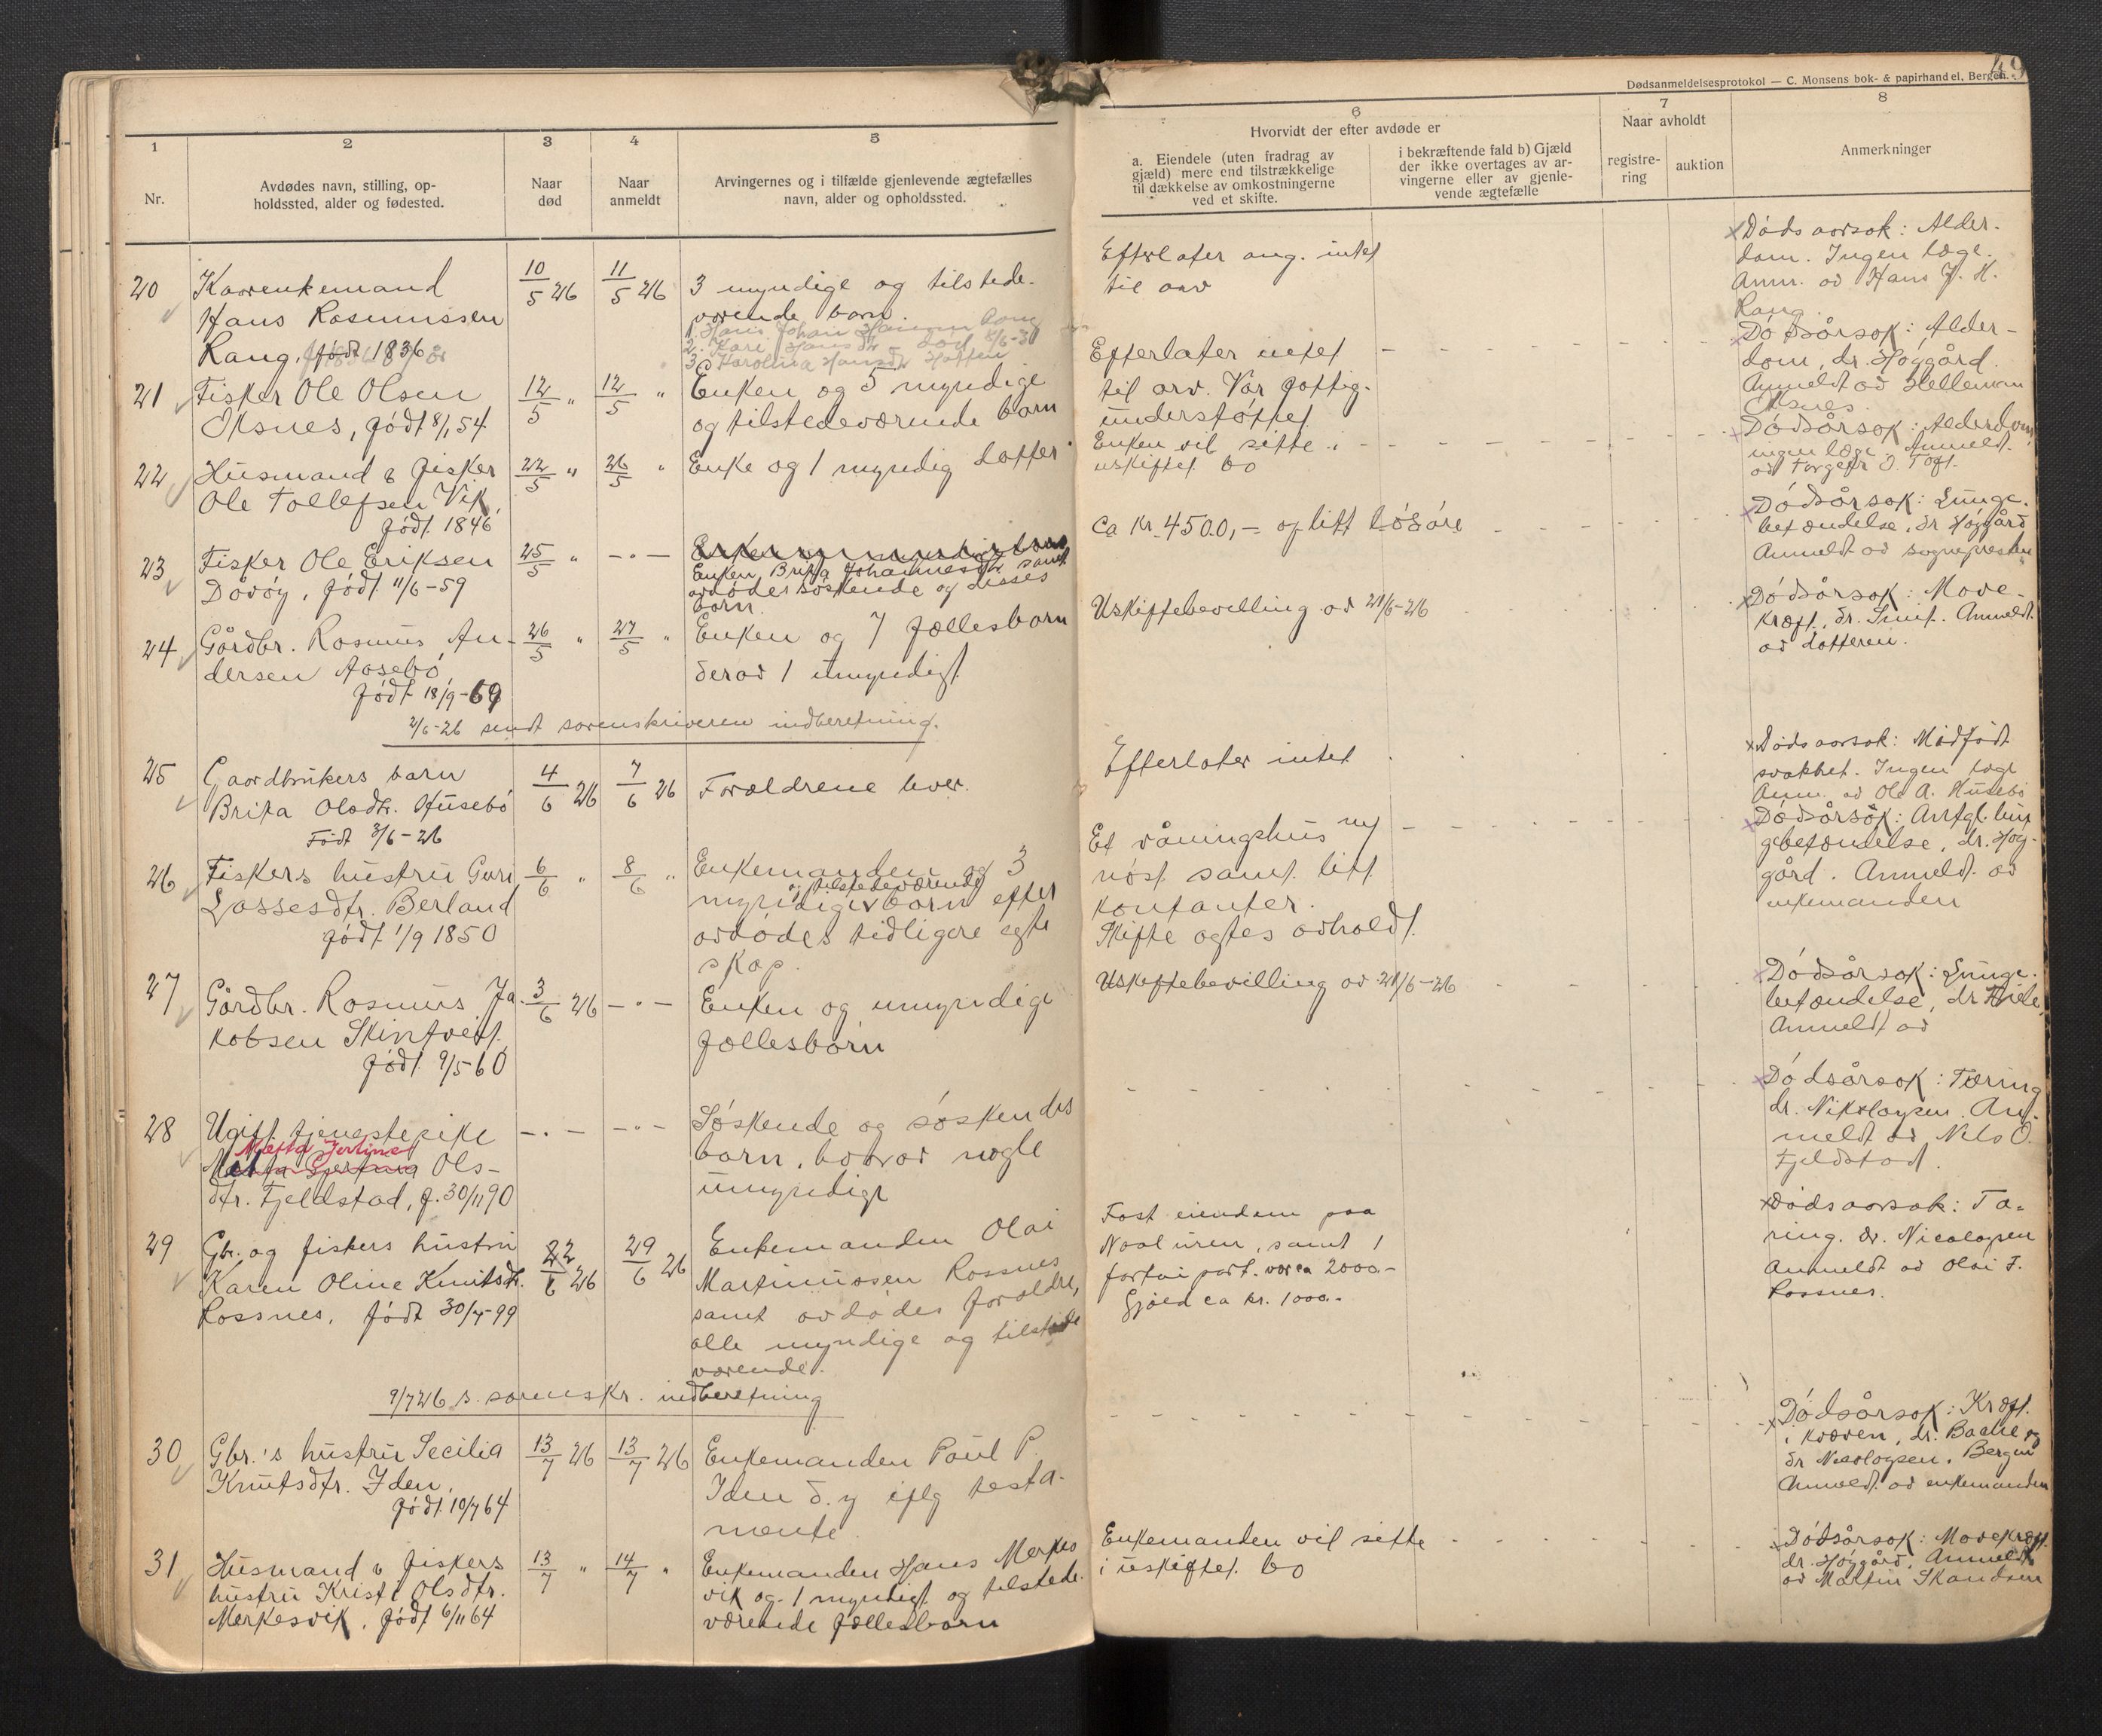 49
Dødsanmeldelsesprotokol — C. Monsens bok- & papirhandel, Bergen.
1
2
3
4
5
6
7
8
Nr.
Avdødes navn, stilling, op-
holdssted, alder og fødested.
Naar
død
Naar
anmeldt
Arvingernes og i tilfælde gjenlevende ægtefælles
navn, alder og opholdssted.
Hvorvidt der efter avdøde er
a. Eiendele (uten fradrag av
gjæld) mere end tilstrækkelige
til dækkelse av omkostningerne
ved et skifte.
i bekræftende fald b) Gjæld
der ikke overtages av ar-
vingerne eller av gjenle-
vende ægtefælle
Naar avholdt
registre-
ring
auktion
Anmerkninger
20
Kaarenkemand
Hans Rasmussen
Rang, født 1836
10/5 26
11/5 26
3 myndige og tilstede-
værende barn.
1. Hans Johan Hansen Rang
2. Kari Hansdtr - død 8/6-31
3. Karolina Hansdtr
Efterlater ang. intet
til arv
Dødsaarsak: Alder-
dom. Ingen læge.
Anm. av Hans J. H.
Rang
21
Fisker Ole Olsen
Oksnes, født 8/1 54
12/5 "
12/5 "
Enken og 5 myndige
og tilstedeværende barn
Efterlater intet
til arv. Var fattig-
understøttet
Dødsårsak: Alder-
dom, dr. Høggård.
Anmeldt av
Oksnes.
22
Husmand & fisker
Ole Tollefsen Vik,
født 1846
22/5 "
26/5 "
Enke og 1 myndig datter
Enken vil sitte i
uskiftet bo
Dødsårsak: Alderdom,
ingen læge. Anmeldt
av Torgeir J. Toft.
23
Fisker Ole Eriksen
Dåvøy, født 11/6-59
25/5 "
-"-
Enken Brita Johannesdtr. samt
avdødes søskende og disses
børn.
Ca kr. 4500,- og litt løsøre
Dødsårsak: Lunge-
betændelse, dr Høggård
Anmeldt av sognepresten
24
Gårdbr. Rasmus An-
dersen Aasebø
født 18/9-69
26/5 "
27/5 "
Enken og 7 fællesbarn
derav 1 umyndigt
Uskiftebevilling av 21/6-26
Dødsårsak: Mave-
kræft, dr. Smit. Anmeldt
av datteren.
2/6-26 sendt sorenskriveren indberetning.
25
Gaardbrukers barn
Brita Olsdtr. Husebø
Født 3/6-26
4/6 26
7/6 26
Forældrene lever.
Efterlater intet
Dødsaarsak: Medfødt
svakhet. Ingen læge
Anm. av Ole A. Husebø
26
Fiskers hustru Guri
Lassesdtr. Berland
født 1/9 1850
6/6 "
8/6 "
Enkemanden og 3
myndige og tilstedeværende barn efter
avdødes tidligere egte
skap.
Et våningshus
nøst samt litt
kontanter.
Skifte agtes avholdt.
Dødsårsak: lun-
gebetændelse, dr. Høg-
gård. Anmeldt av
enkemanden
27
Gårdbr. Rasmus Ja-
kobsen Skintveit.
født 9/5 60
3/6 26
-"-
Enken og umyndige
fællesbarn
Uskiftebevilling av 21/6-26
Dødsårsak: Lunge-
betændelse, dr
Anmeldt av
28
Ugift tjenestepike
Metta Jertine
Ols-
dtr. Fjeldstad, f. 30/11 90
-"-
-"-
Søskende og søskendes
barn, hvorav nogle
umyndige
Dødsårsak: Tæring
dr. Nikolaysen. An-
meldt av Nils O.
Fjeldstad.
29
Gbr. og fiskers hustru
Karen Oline Knutsdtr.
Rossnes, født 30/4-99
22/6 26
29/6 26
Enkemanden Olai
Martinussen Rossnes
samt avdødes forældre,
alle myndige og tilstede
værende.
Fast eiendom paa
samt 1
part. ca 2000.-
Gjæld ca kr. 1000.-
Dødsaarsak: Tæ-
ring. dr. Nicolaysen
Anmeldt av Olai T.
Rossnes.
9/7 26 s. sorenskr. indberetning
30
Gbr.'s hustru Secilia
Knutsdtr. Iden,
født 10/7 64
13/7 26
13/7 26
Enkemanden Poul P.
Iden d.y iflg testa-
mente
Dødsårsak: Kræft.
dr. Bache og
dr Nicolaysen, Bergen
Anmeldt av enkemanden
31
Husmand & fiskers
hustru Kristi Olsdtr.
Merkesvik, født 6/11 64
13/7 "
14/7 "
Enkemanden Hans Merkes
vik og 1 myndigt og tilstede-
værende fællesbarn
Enkemanden vil sitte
i uskiftet bo
Dødsårsak: Mavekræft.
dr. Høggård. Anmeldt
av Martin Skandsen